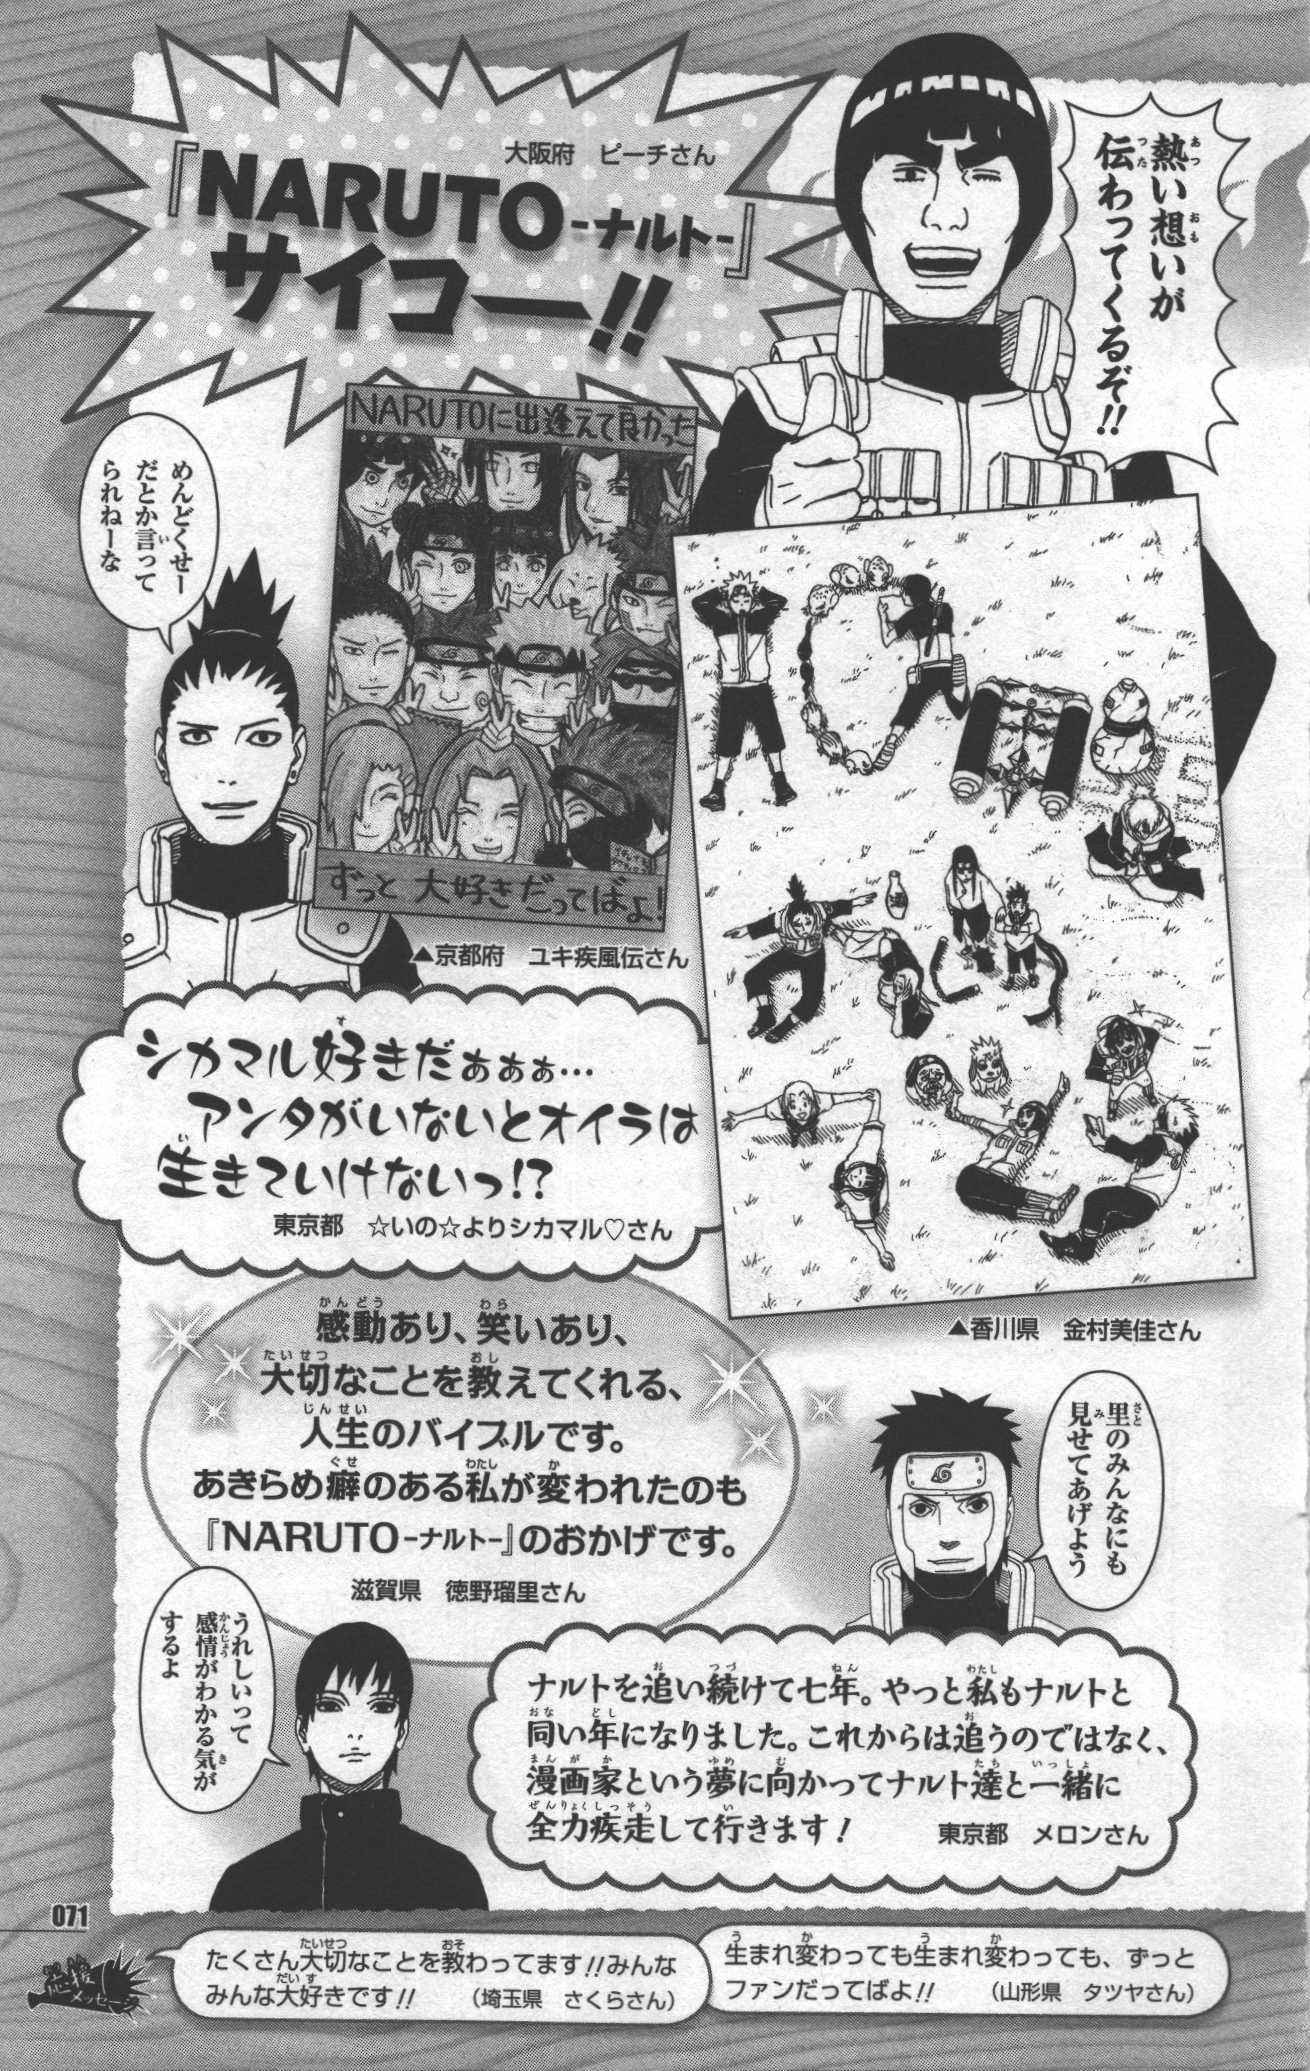 大阪府　ピーチさん
『NARUTO-ナルト-』
サイコー!!
熱い想いが
伝わってくるぞ!!
NARUTOに出逢えて良かった
ずっと 大好きだってばよ!
▲京都府　ユキ疾風伝さん
めんどくせー
だとか言って
られねーな
シカマル好きだぁぁぁ…
アンタがいないとオイラは
生きていけないっ!?
東京都　☆いの☆よりシカマル♡さん
▲香川県　金村美佳さん
感動あり、笑いあり、
大切なことを教えてくれる、
人生のバイブルです。
あきらめ癖のある私が変われたのも
『NARUTO-ナルト-』のおかげです。
滋賀県　徳野瑠里さん
里のみんなにも
見せてあげよう
うれしいって
感情がわかる気が
するよ
ナルトを追い続けて七年。やっと私もナルトと
同い年になりました。これからは追うのではなく、
漫画家という夢に向かってナルト達と一緒に
全力疾走して行きます!
東京都　メロンさん
071
応援
メッセージ
たくさん大切なことを教わってます!!みんな
みんな大好きです!!　（埼玉県　さくらさん）
生まれ変わっても生まれ変わっても、ずっと
ファンだってばよ!!　（山形県　タツヤさん）